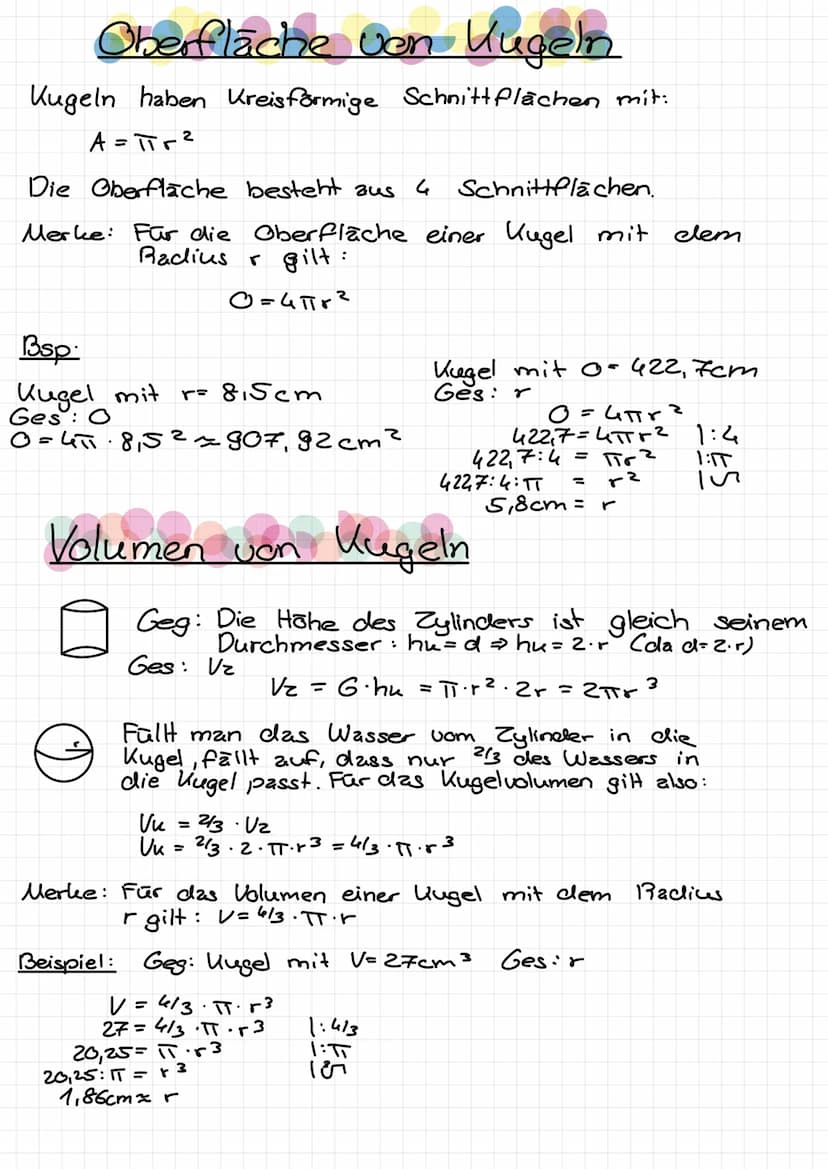 Oberfläche von Kugeln
Kugeln haben Kreisförmige Schnittflächen mit:
A = πr²
Die Oberfläche besteht aus 4 Schnittflächen.
Merke: Für die Oberfläche einer Kugel mit dem
Radius r gilt:
O = 4πr²
Bsp:
Kugel mit r= 8,5cm
Ges: O
O = 4π · 8,5² ≈ 907,92cm²
Kugel mit O= 422,7cm
Ges: r
O = 4πr²
422,7 = 4πr² |:4
422,7:4 = πr² |:π
422,7:4:π = r² |√
5,8cm = r
Volumen von Kugeln
Geg: Die Höhe des Zylinders ist gleich seinem
Durchmesser: hk = d ⇒ hk = 2·r (da d=2·r)
Ges: Vz
Vz = G·hk = π·r²·2r = 2πr³
r
Füllt man das Wasser vom Zylinder in die
Kugel, fällt auf, dass nur 2/3 des Wassers in
die Kugel passt. Für das Kugelvolumen gilt also:
Vk = 2/3 · Vz
Vk = 2/3 · 2 · π·r³ = 4/3 · π · r³
Merke: Für das Volumen einer Kugel mit dem Radius
r gilt: V= 4/3 · π · r
Beispiel: Geg: Kugel mit V= 27cm³ Ges: r
V = 4/3 · π · r³
27 = 4/3 · π · r³ |: 4/3
20,25 = π · r³ |: π
20,25:π = r³ |∛
1,86cm ≈ r